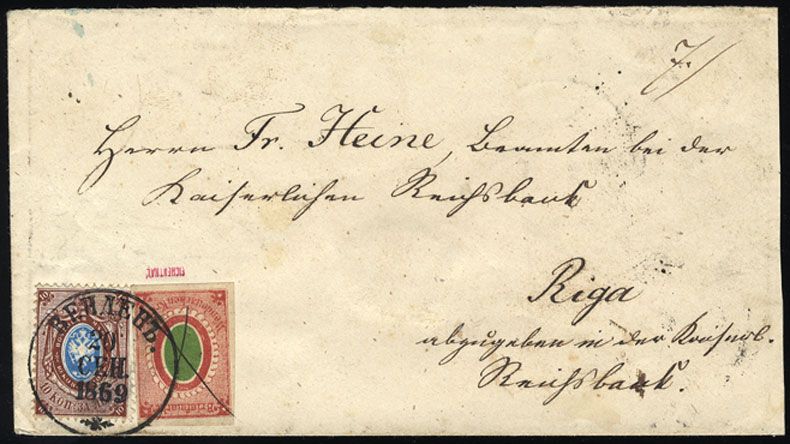 7./
Herrn Fr. Heine, Beamten bei der
Kaiserlichen Reichsbank
Riga
abzugeben in der Kaiserl.
Reichsbank.
EICHENTHAL
ВЕНДЕНЪ.
20
СЕН.
1869
10 КОП. ЗА
Briefmarke